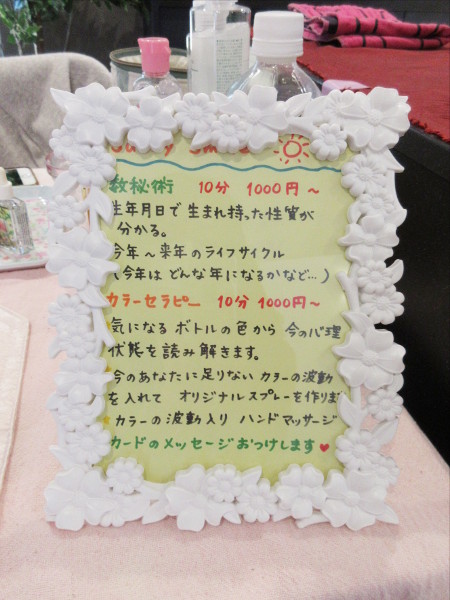 数秘術 10分 1000円～
生年月日で生まれ持った性質が
分かる。
今年～来年のライフサイクル
(今年はどんな年になるかなど…)
カラーセラピー 10分 1000円～
気になるボトルの色から 今の心理
状態を読み解きます。
今のあなたに足りない カラーの波動
を入れて オリジナルスプレーを作りま
カラーの波動入り ハンドマッサージ
カードのメッセージおつけします♥